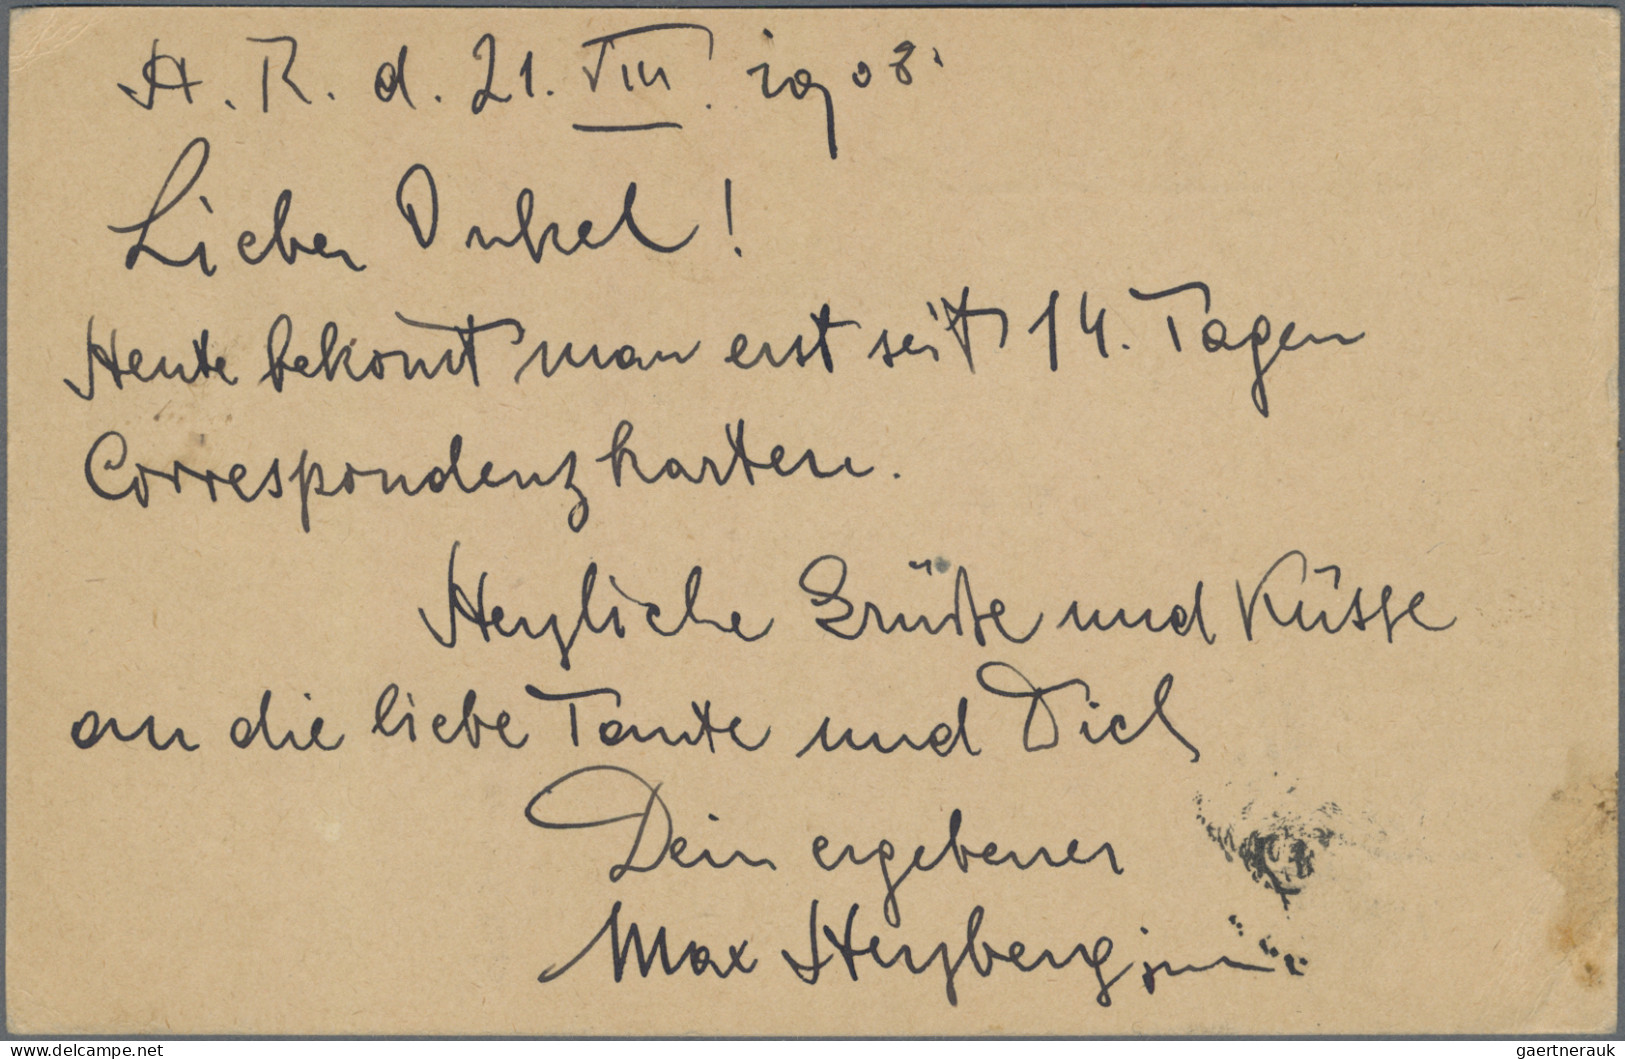 A. R. d. 21. VIII. 1908.
Lieber Onkel!
Heute bekomt man erst seit 14. Tagen
Correspondenzkarten.
Herzliche Grüße und Küsse
an die liebe Tante und Dich
Dein ergebener
Max Herzberg junior
www.delcampe.net
gaertnerauk